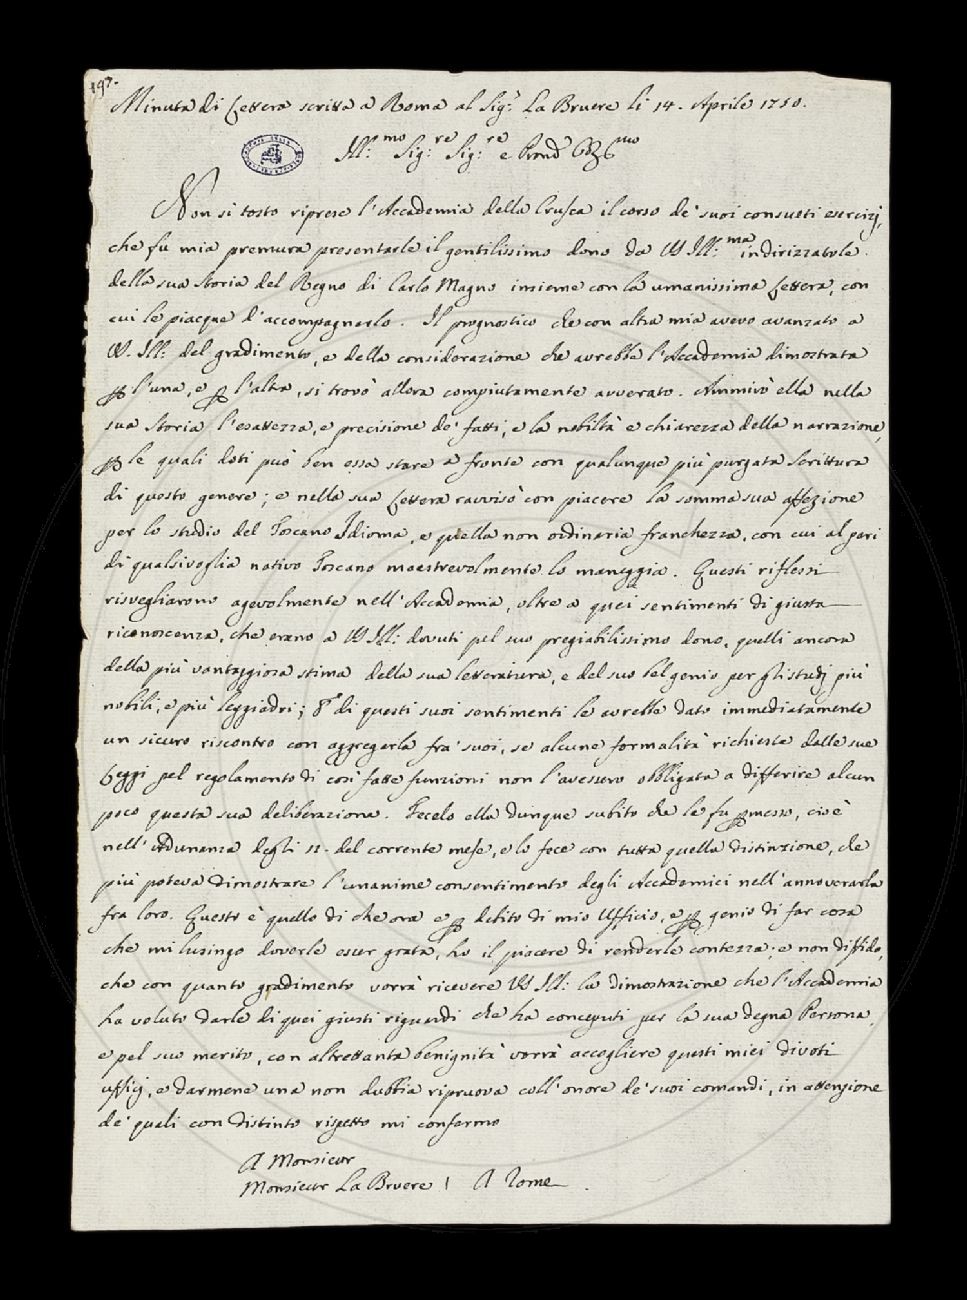 197.
Minuta di Lettera scritta a Roma al Sig.r La Bruere li 14. Aprile 1750.
Ill:mo Sig:re Sig:re e Prone
Non sì tosto riprese l'Accademia della Crusca il corso de' suoi consueti esercizj,
che fu mia premura presentarle il gentilissimo dono da VS Ill:ma indirizzatole
della sua Storia del Regno di Carlo Magno insieme con la umanissima Lettera, con
cui le piacque d'accompagnarlo. Il prognostico che con altra mia avevo avanzato a
VS. Ill: del gradimento, e della considerazione che avrebbe l'Accademia dimostrata
p l'una, e p l'altra, si trovò allora compiutamente avverato. Ammirò ella nella
sua Storia l'esattezza, e precisione de' fatti, e la nobiltà e chiarezza della narrazione,
p le quali doti può ben essa stare a fronte con qualunque più purgata Scrittura
di questo genere; e nella sua Lettera ravvisò con piacere la somma sua affezione
per lo studio del Toscano Idioma, e quella non ordinaria franchezza, con cui al pari
di qualsivoglia nativo Toscano maestrevolmente lo maneggia. Questi riflessi
risvegliarono agevolmente nell'Accademia, oltre a quei sentimenti di giusta
riconoscenza, che erano a VS Ill: dovuti pel suo pregiabilissimo dono, quelli ancora
della più vantaggiosa stima della sua letteratura, e del suo bel genio per gli studj più
nobili, e più leggiadri; & di questi suoi sentimenti le avrebbe dato immediatamente
un sicuro riscontro con aggregarla fra' suoi, se alcune formalità richieste dalle sue
Leggi pel regolamento di così fatte funzioni non l'avessero obbligata a differire alcun
poco questa sua deliberazione. Fecelo ella dunque subito che le fu pmesso, cioè
nell'Adunanza degli 12. del corrente mese, e lo fece con tutta quella distinzione, che
più poteva dimostrare l'unanime consentimento degli Accademici nell'annoverarla
fra loro. Questo è quello di che ora e p debito di mio Uffizio, e p genio di far cosa
che mi lusingo doverle esser grata, ho il piacere di renderle contezza; e non diffido,
che con quanto gradimento vorrà ricevere VS Ill: la dimostrazione che l'Accademia
ha voluto darle di quei giusti riguardi che ha conceputi per la sua degna Persona,
e pel suo merito, con altrettanta benignità vorrà accogliere questi miei divoti
uffizj, e darmene una non dubbia riprova coll'onore de' suoi comandi, in attenzione
de' quali con distinto rispetto mi confermo
A Monsieur
Monsieur La Bruere / A Rome